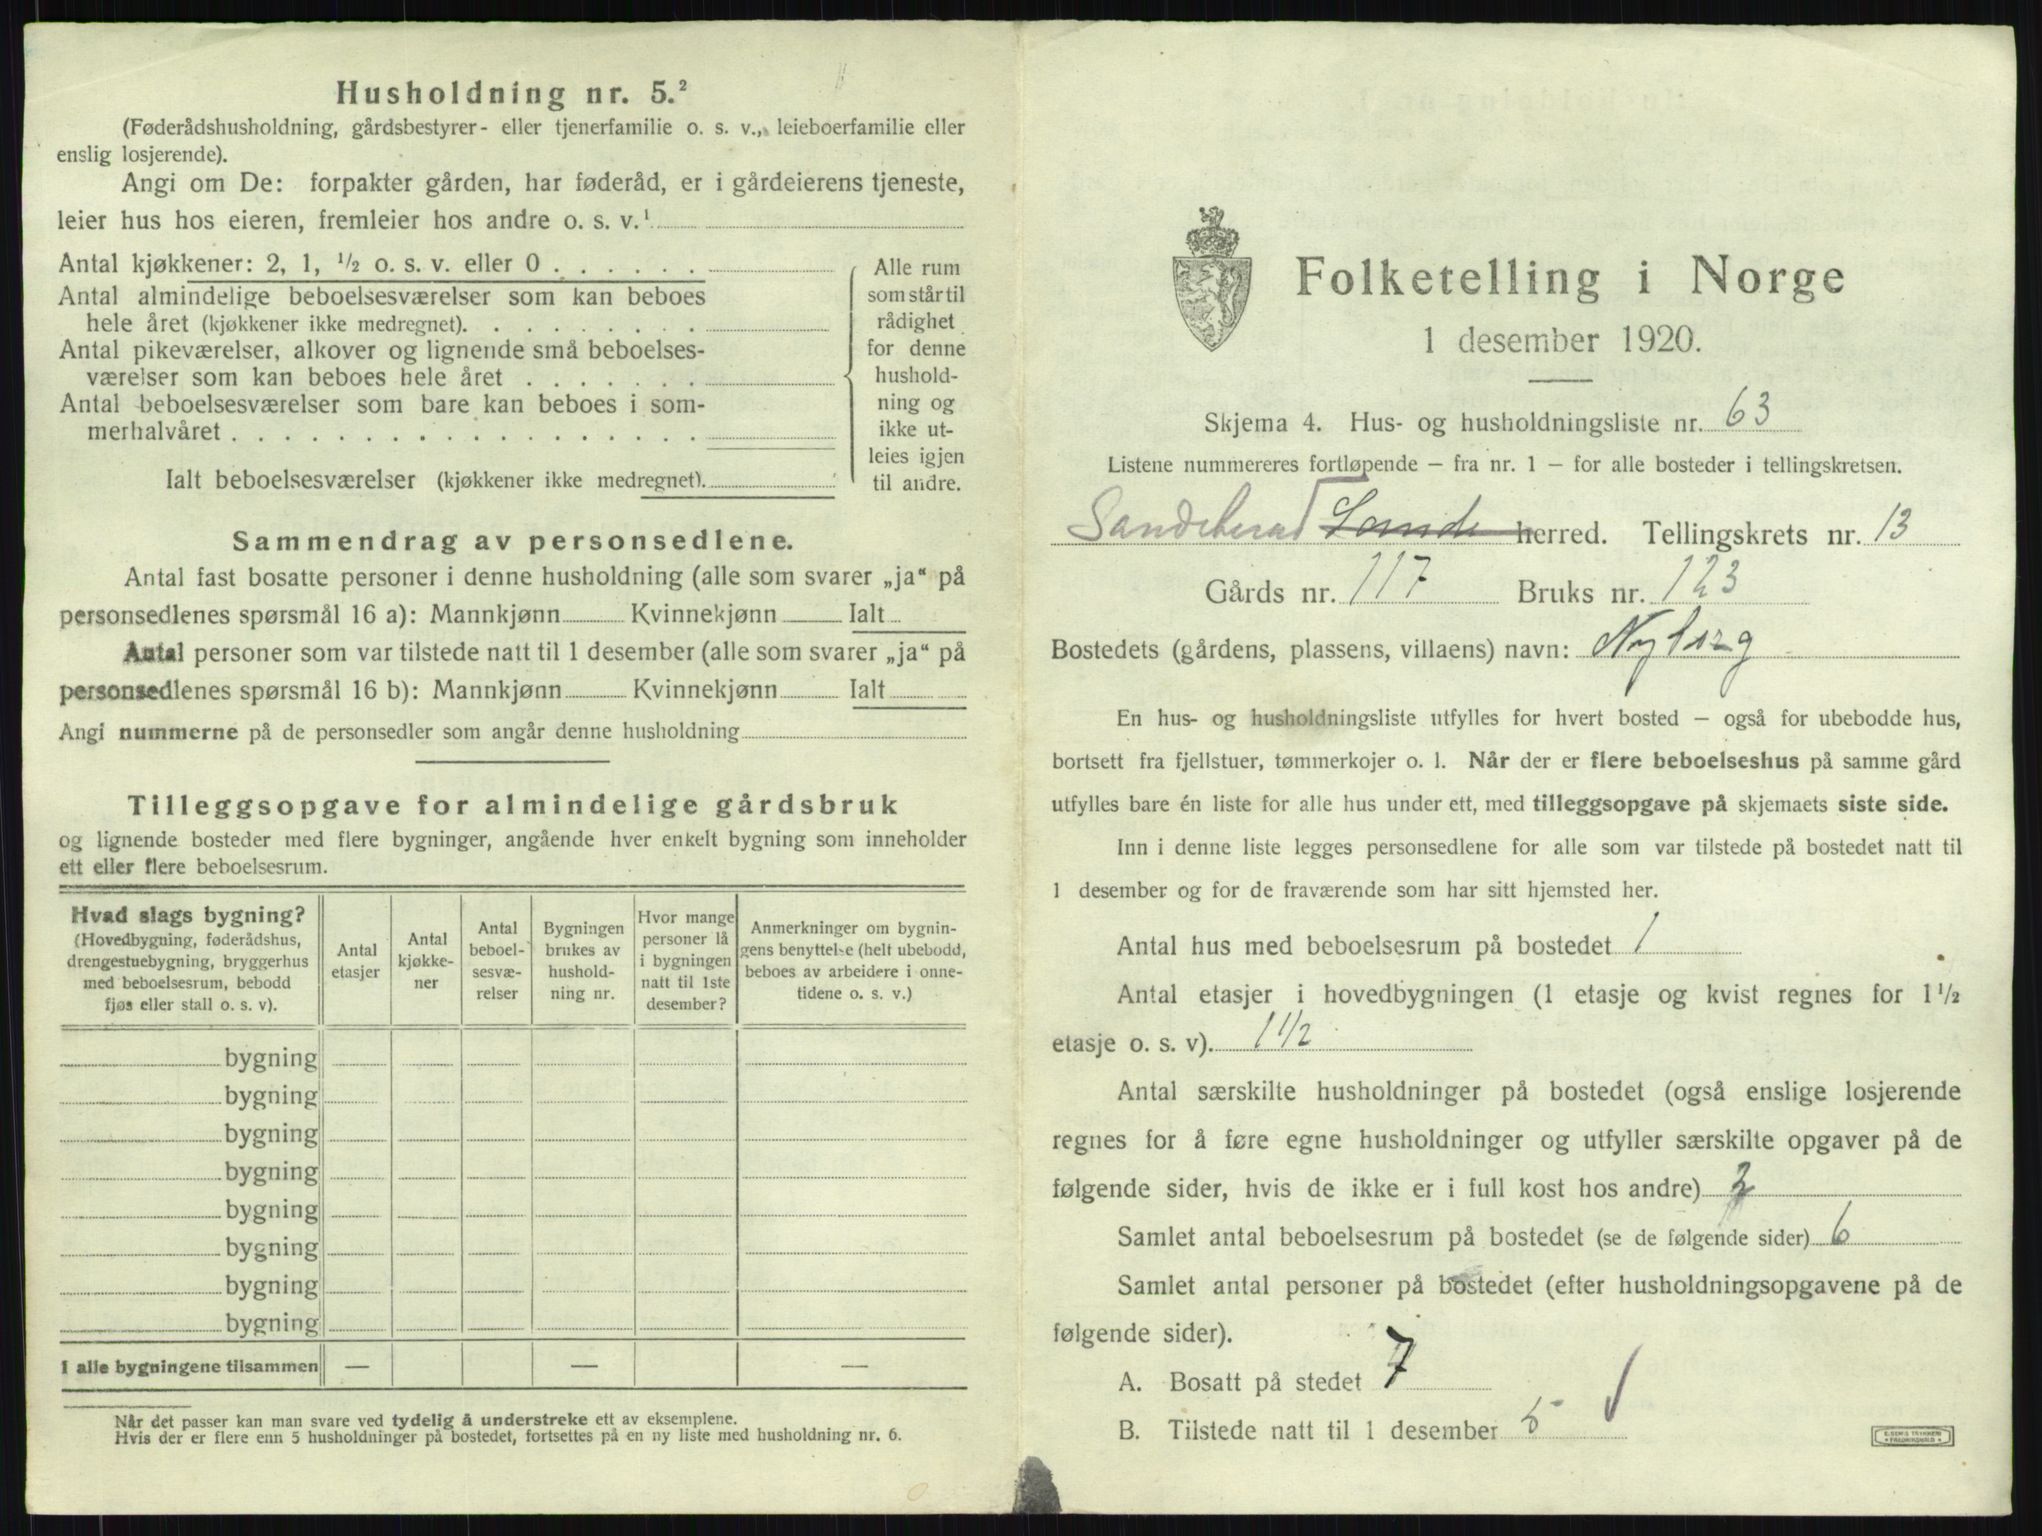 Husholdning nr. 5.²
(Føderådshusholdning, gårdsbestyrer- eller tjenerfamilie o. s. v., leieboerfamilie eller
enslig losjerende).
Angi om De: forpakter gården, har føderåd, er i gårdeierens tjeneste,
leier hus hos eieren, fremleier hos andre o. s. v.¹
Antal kjøkkener: 2, 1, ½ o. s. v. eller 0 . . . . . .
Antal almindelige beboelsesværelser som kan beboes
hele året (kjøkkener ikke medregnet). . . . . . . . .
Antal pikeværelser, alkover og lignende små beboelses-
værelser som kan beboes hele året . . . . . . .
Antal beboelsesværelser som bare kan beboes i som-
merhalvåret . . . . . . . . . . . . . . . . . .
Ialt beboelsesværelser (kjøkkener ikke medregnet).
Alle rum
som står til
rådighet
for denne
hushold-
ning og
ikke ut-
leies igjen
til andre.
Sammendrag av personsedlene.
Antal fast bosatte personer i denne husholdning (alle som svarer „ja“ på
personsedlenes spørsmål 16 a): Mannkjønn Kvinnekjønn Ialt
Antal personer som var tilstede natt til 1 desember (alle som svarer „ja“ på
personsedlenes spørsmål 16 b): Mannkjønn Kvinnekjønn Ialt
Angi nummerne på de personsedler som angår denne husholdning
Tilleggsopgave for almindelige gårdsbruk
og lignende bosteder med flere bygninger, angående hver enkelt bygning som inneholder
ett eller flere beboelsesrum.
Hvad slags bygning?
(Hovedbygning, føderådshus,
drengestuebygning, bryggerhus
med beboelsesrum, bebodd
fjøs eller stall o. s. v).
Antal
etasjer
Antal
kjøkke-
ner
Antal
beboel-
sesvæ-
relser
Bygningen
brukes av
hushold-
ning nr.
Hvor mange
personer lå
i bygningen
natt til 1ste
desember?
Anmerkninger om bygnin-
gens benyttelse (helt ubebodd,
beboes av arbeidere i onne-
tidene o. s. v.)
bygning
bygning
bygning
bygning
bygning
bygning
bygning
bygning
I alle bygningene tilsammen — — —
Når det passer kan man svare ved tydelig å understreke ett av eksemplene.
Hvis der er flere enn 5 husholdninger på bostedet, fortsettes på en ny liste med husholdning nr. 6.
Folketelling i Norge
1 desember 1920.
Skjema 4. Hus- og husholdningsliste nr. 63
Listene nummereres fortløpende — fra nr. 1 — for alle bosteder i tellingskretsen.
Sandeherad Sande herred. Tellingskrets nr. 13
Gårds nr. 117 Bruks nr. 123
Bostedets (gårdens, plassens, villaens) navn: Nyborg
En hus- og husholdningsliste utfylles for hvert bosted — også for ubebodde hus,
bortsett fra fjellstuer, tømmerkojer o. l. Når der er flere beboelseshus på samme gård
utfylles bare én liste for alle hus under ett, med tilleggsopgave på skjemaets siste side.
Inn i denne liste legges personsedlene for alle som var tilstede på bostedet natt til
1 desember og for de fraværende som har sitt hjemsted her.
Antal hus med beboelsesrum på bostedet 1
Antal etasjer i hovedbygningen (1 etasje og kvist regnes for 1½
etasje o. s. v). 1½
Antal særskilte husholdninger på bostedet (også enslige losjerende
regnes for å føre egne husholdninger og utfyller særskilte opgaver på de
følgende sider, hvis de ikke er i full kost hos andre)
Samlet antal beboelsesrum på bostedet (se de følgende sider) 6
Samlet antal personer på bostedet (efter husholdningsopgavene på de
følgende sider).
A. Bosatt på stedet 7
B. Tilstede natt til 1 desember 5